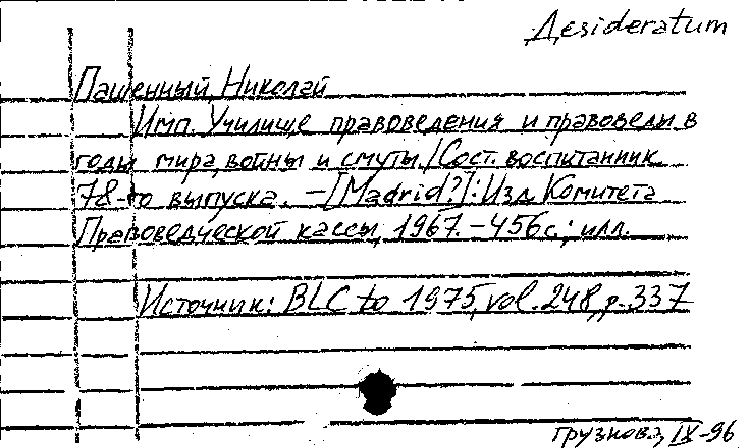 Desideratum
Пашенный, Николай
Имп. Училище правоведения и правоведы в
годы мира, войны и смуты. / Сост. воспитанник
78-го выпуска. — [Madrid?]: Изд. Комитета
Правоведческой кассы, 1967. — 456с.; илл.
Источник: BLC to 1975, vol. 248, p. 337
Грузнова, IX-96